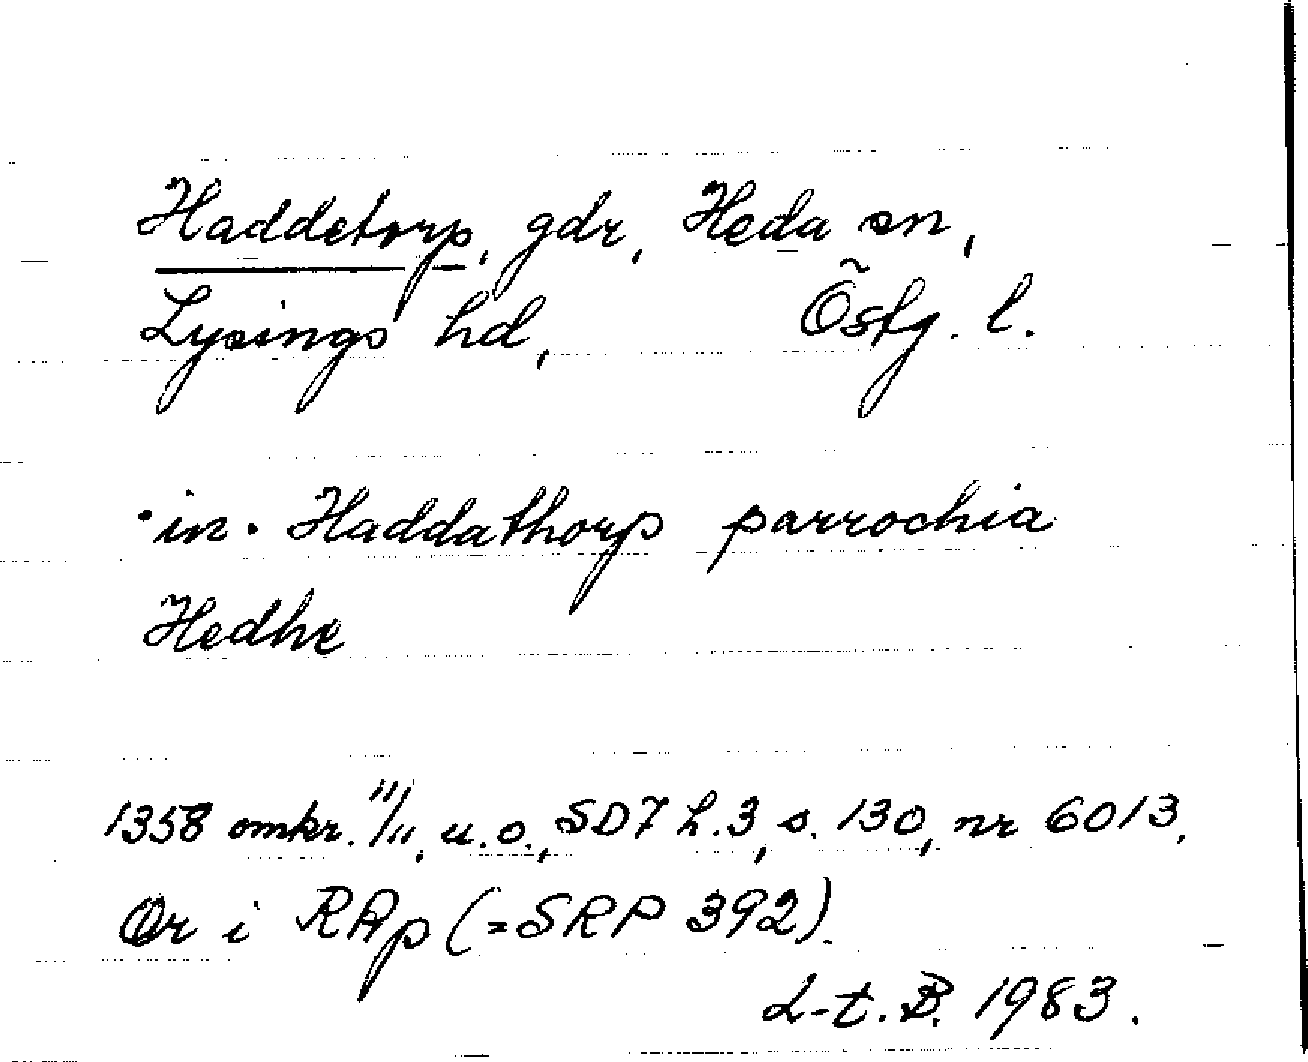 Haddetorp, gdr, Heda sn,
Lysings hd, Östg. l.
·in· Haddathorp parrochia
Hedhe
1358 omkr. 11/11, u.o., SD7 h.3, s. 130, nr 6013,
Or i RAp (=SRP 392).
L-t. B. 1983.